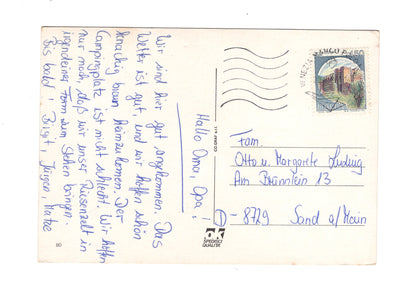 Hallo Oma, Opa!
Wir sind hier gut angekommen. Das
Wetter ist gut, und wir hoffen schön
knackig braun heimzukommen. Der
Campingplatz ist nicht schlecht. Wir hoffen
nur noch, daß wir unser Riesenzelt in
irgendeine Form zum Stehen bringen.
Bis bald! Birgit, Jürgen,
Fam.
Otto u. Margarete Ludwig
Am Brünnlein 13
D-8729 Sand a/Main
OK
SPEDISCI
QUALITÀ
90